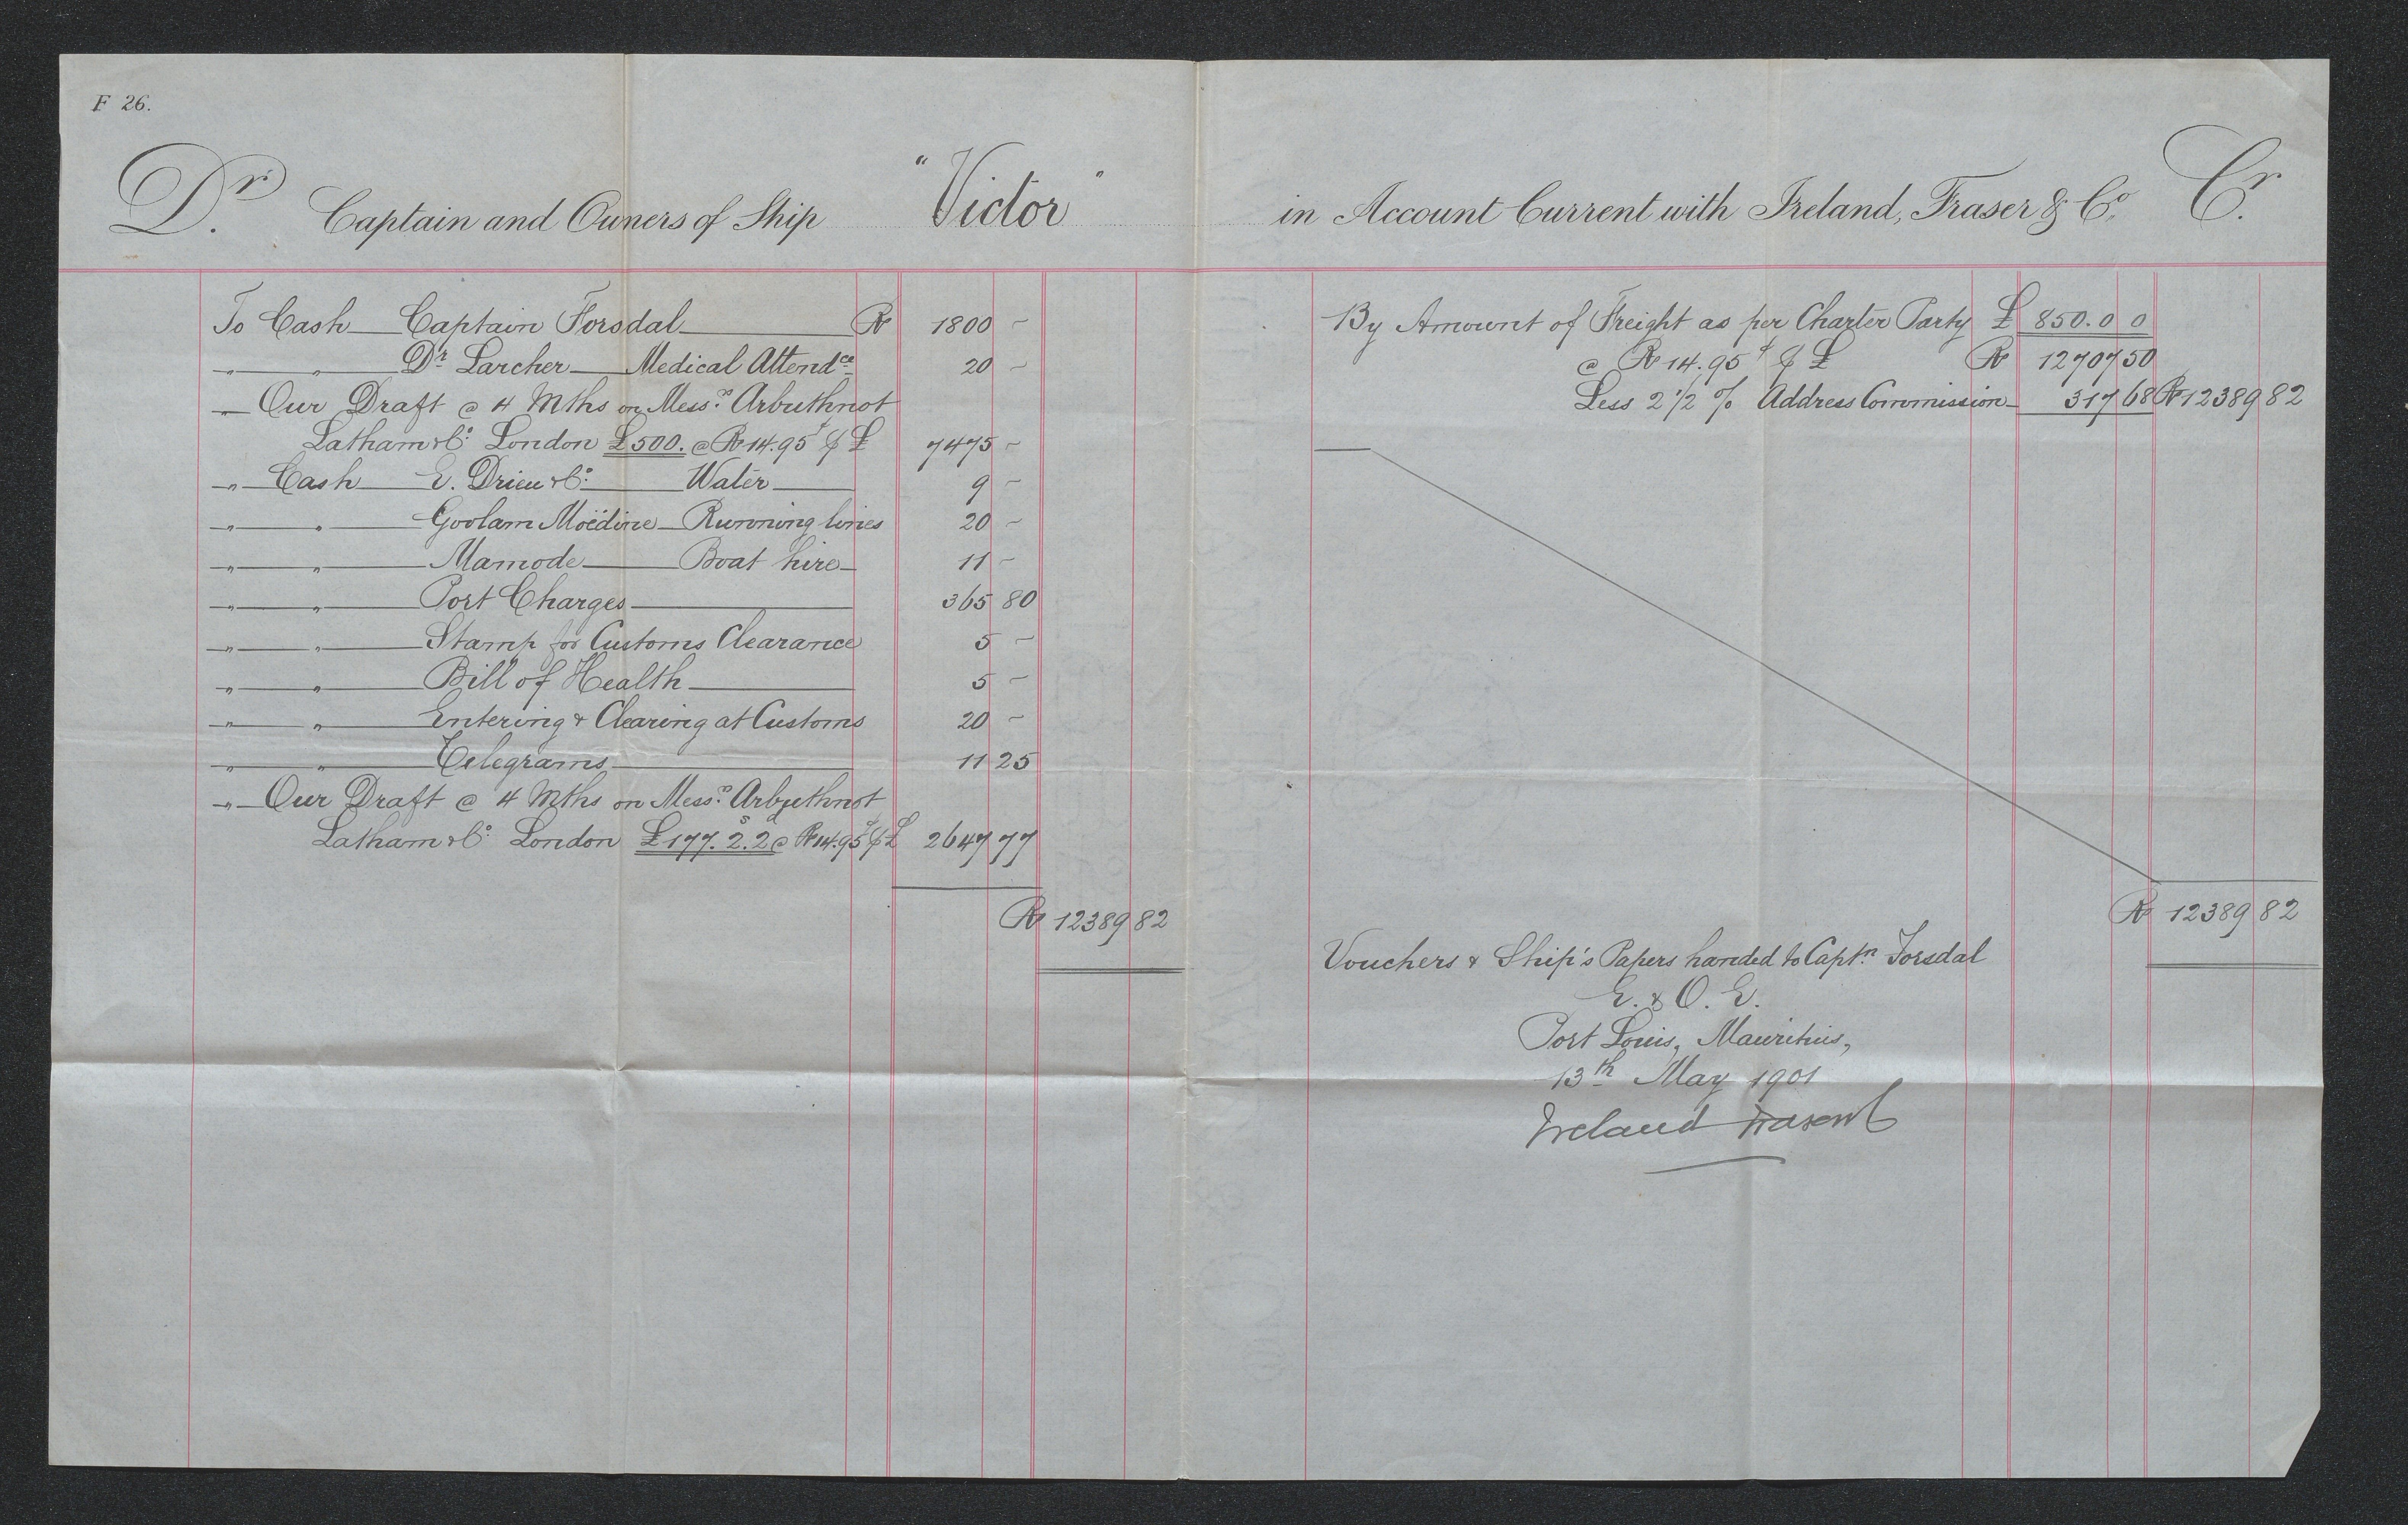 F 26.
Dr. Captain and Owners of Ship "Victor" in Account Current with Ireland, Fraser & Co. Cr.
To Cash Captain Forsdal Rs 1800 –
" " Dr Larcher Medical Attendce 20 –
" Our Draft @ 4 Mths on Messrs Arbuthnot
Latham & Co: London £500. @ Rs 14.95 ₽ £ 7475 –
" Cash E. Drieu & Co: Water 9 –
" " Goolam Moëdine Running lines 20 –
" " Mamode Boat hire 11 –
" " Port Charges 365 80
" " Stamp for Customs Clearance 5 –
" " Bill of Health 5 –
" " Entering & Clearing at Customs 20 –
" " Telegrams 11 25
" Our Draft @ 4 Mths on Messrs Arbuthnot
Latham & Co: London £177. 2s. 2d @ Rs 14.95 ₽ £ 2647 77
Rs 12389 82
By Amount of Freight as per Charter Party £ 850. 0 0
@ Rs 14.95 ₽ £ Rs 12707 50
Less 2 1/2 % Address Commission 317 68 Rs 12389 82
Rs 12389 82
Vouchers & Ship's Papers handed to Captn Forsdal
E. & O. E.
Port Louis, Mauritius,
13th May 1901
Ireland Fraser & Co